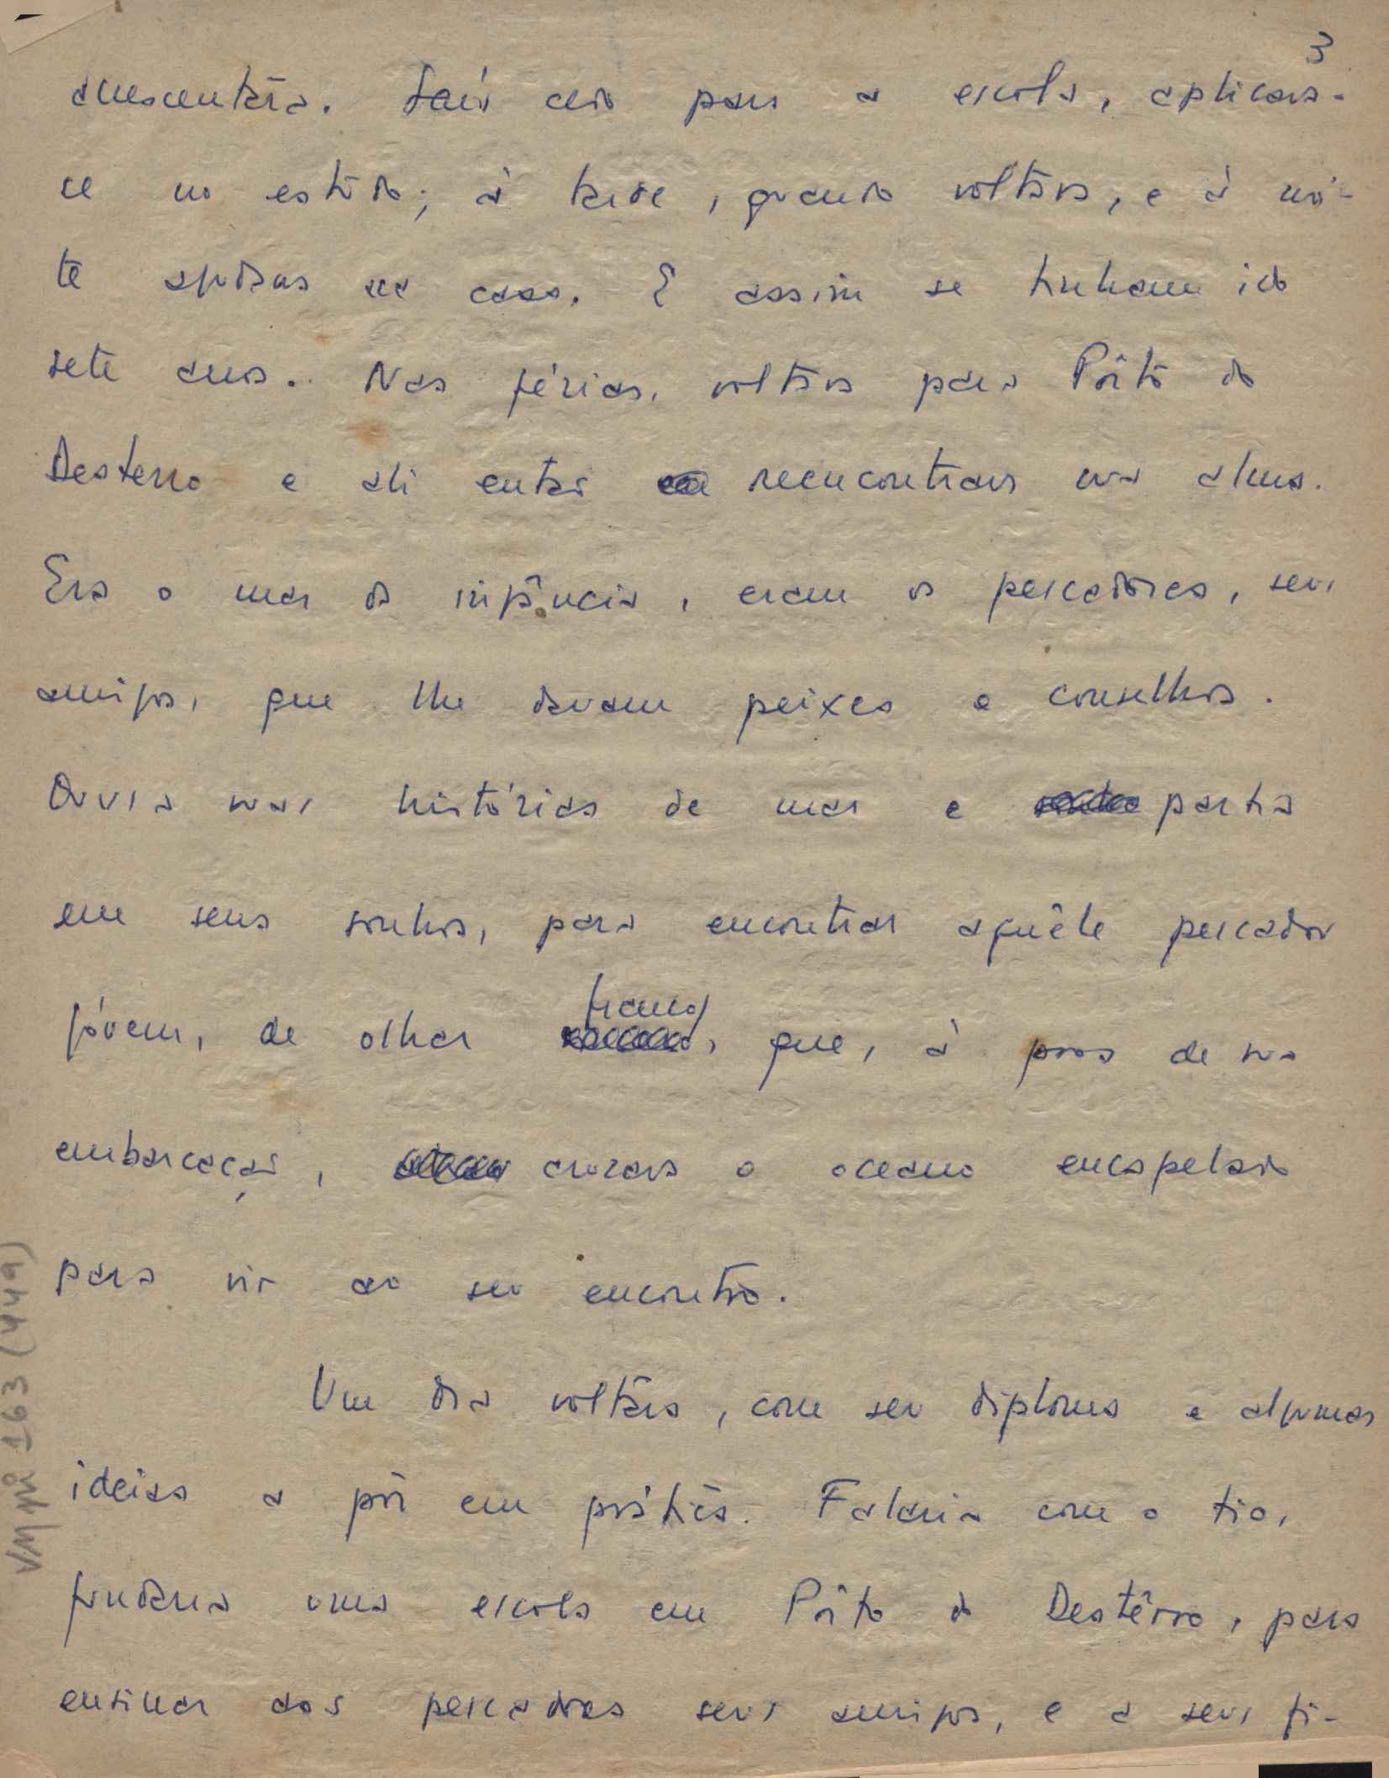 3
acrescentára. Saía cedo para a escola, aplicava-
se no estudo; à tarde, quando voltava, e à nói-
te ajudava na casa. E assim se tinham ido
sete anos. Nas férias, voltava para Pôrto do
Desterro e ali então reencontrava sua alma.
Era o mar da infância, eram os pescadores, seus
amigos, que lhe davam peixes e conselhos.
Ouvia suas histórias de mar e partia
em seus sonhos, para encontrar aquêle pescador
jóvem, de olhar franco, que, à proa de sua
embarcação, cruzava o oceano encapelado
para vir ao seu encontro.
Um dia voltára, com seu diploma e algumas
ideias a pôr em prática. Falaria com o tio,
fundaria uma escola em Pôrto do Destêrro, para
ensinar aos pescadores seus amigos, e a seus fi-
VM pi 163 (449)